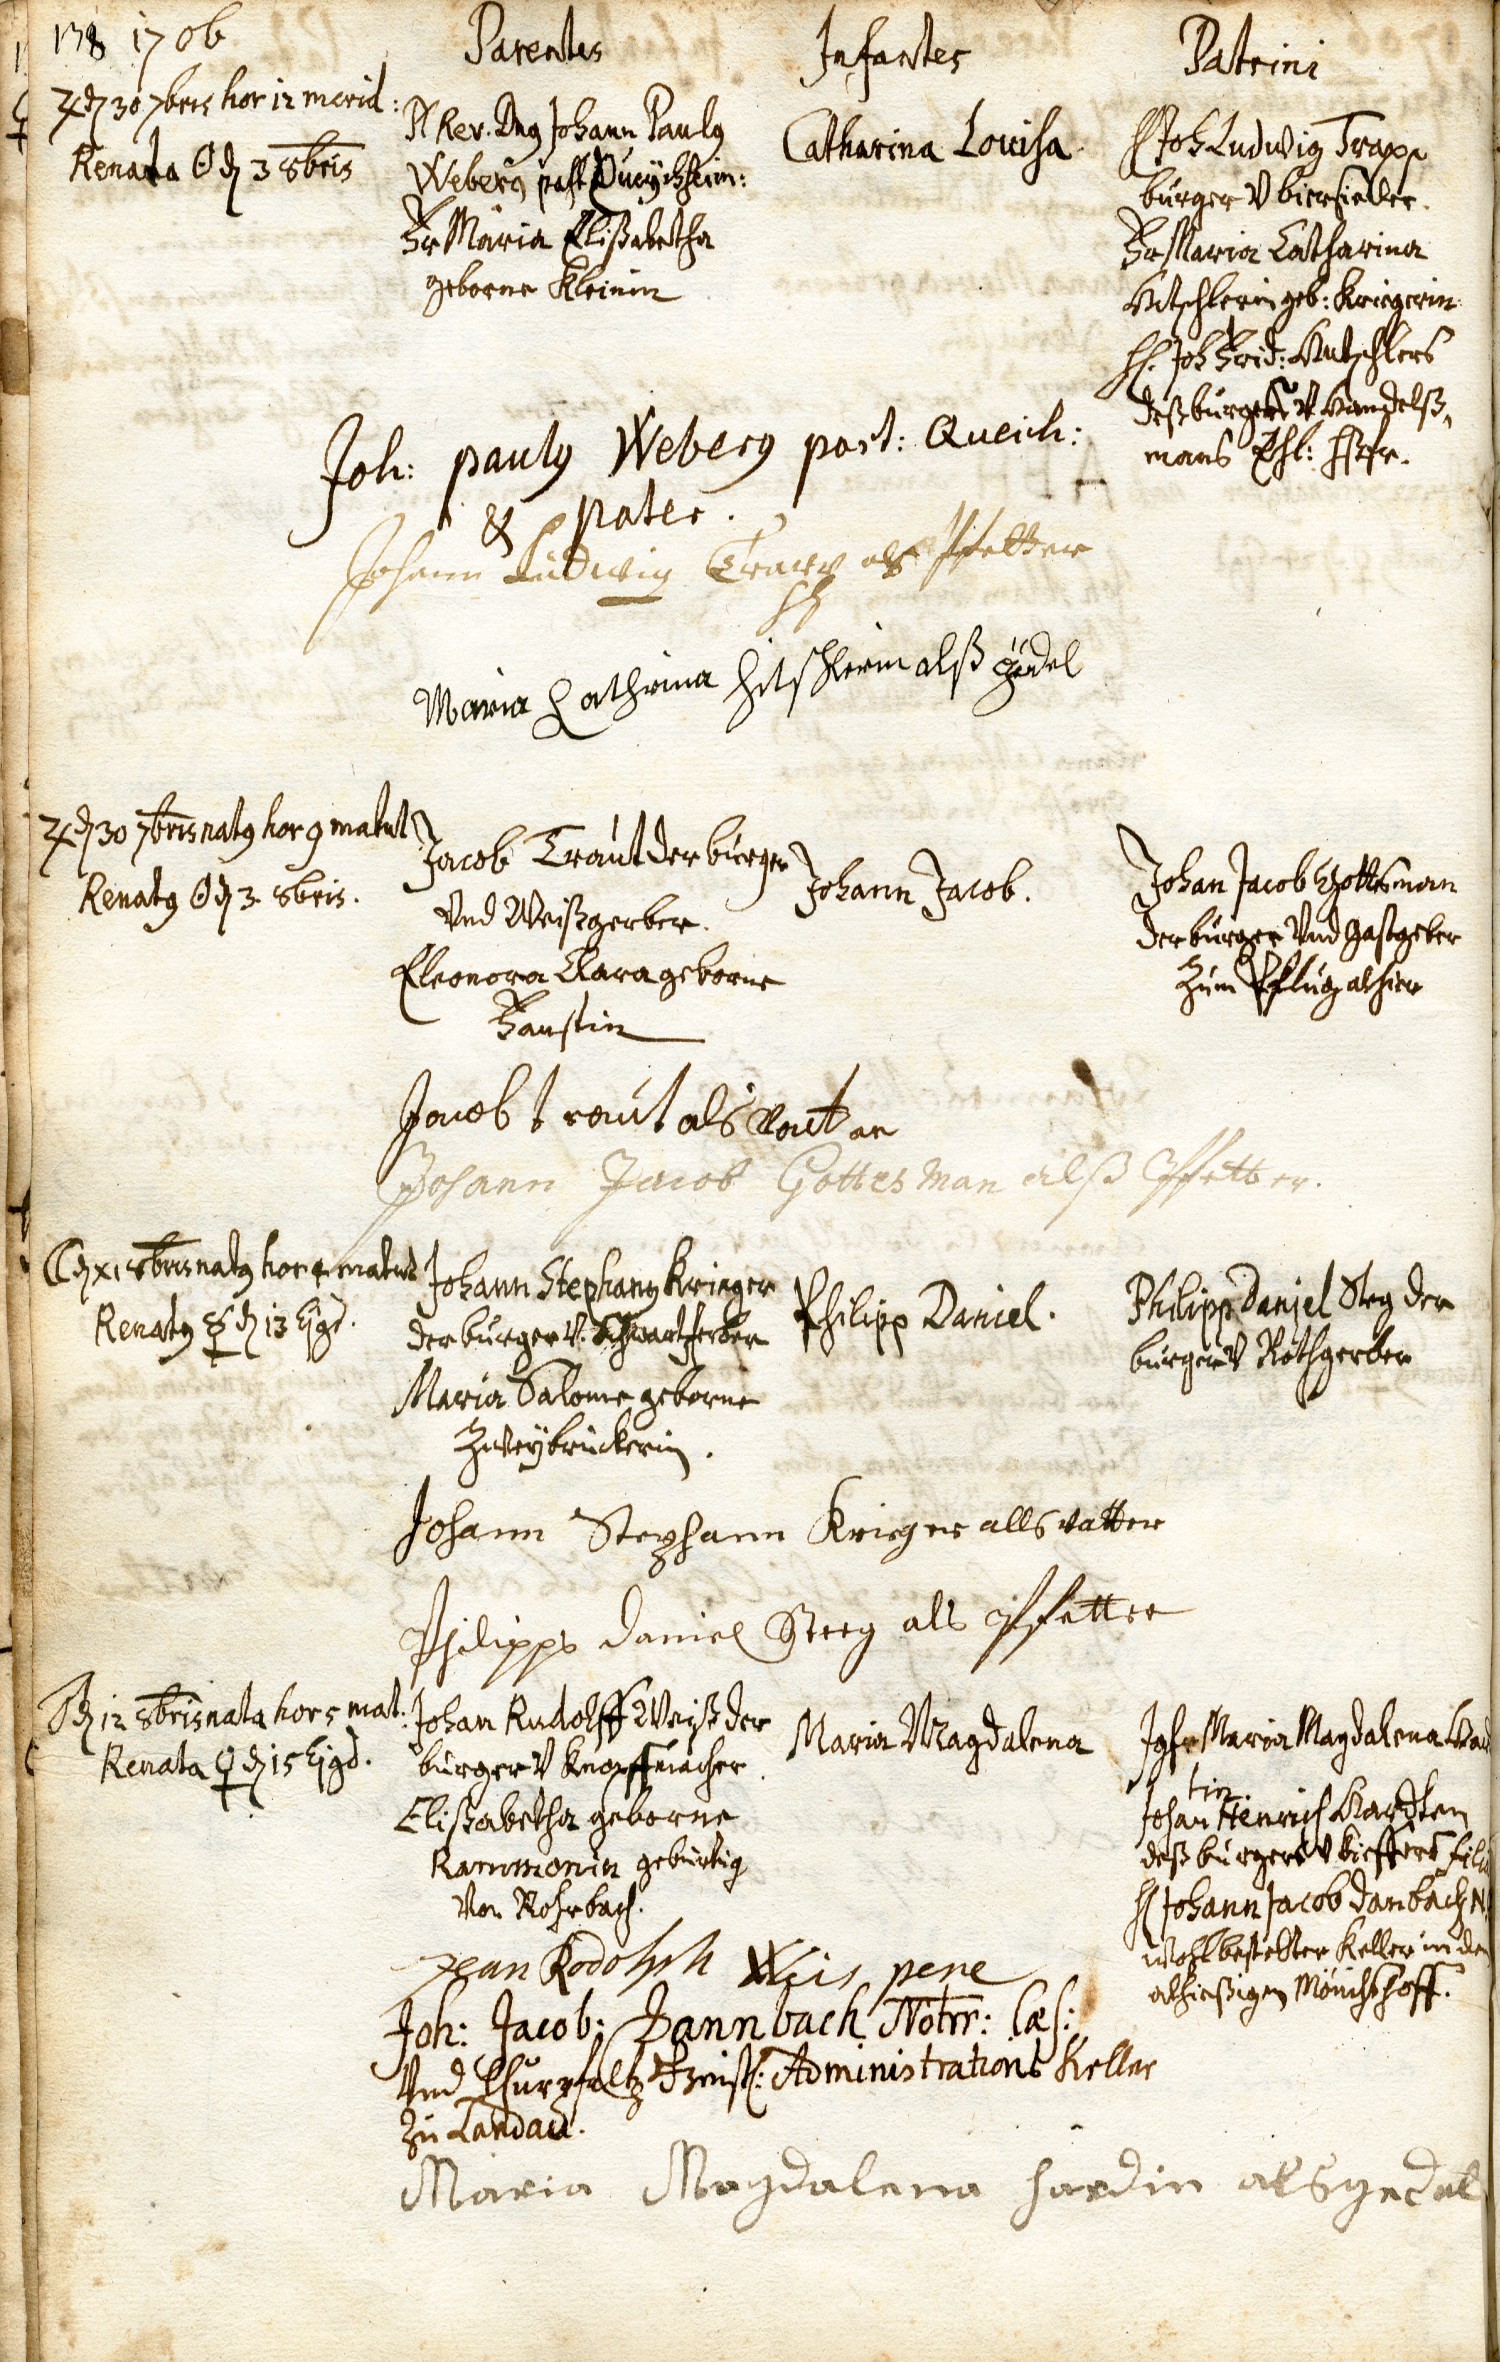 138 1706
Parentes
Infantes
Patrini
♃ d 30 7bris hor 12 merid:
Renata ☉ d 3 8bris
Pl Rev. Dnꝰ Johann Paulꝰ
Weberꝰ past Queÿchheim:
Fr Maria Elisabetha
geborne Kleinin
Catharina Louisa
H Joh Ludwig Trapp
burger V biersieder.
Fr Maria Catharina
Hitschlerin geb: Kriegerin
H. Joh Frid: Hutschlers
deß burgers V Handelß,
mans Ehl: Hßfr.
Joh: paulꝰ Weberꝰ past: Queich:
& pater.
Johann Ludwig Trapp als Pfetter
Maria Cathrina Hitschlerin alß gödel
♃ d 30 7bris natꝰ hor 9 matut
Renatꝰ ☉ d 3. 8bris.
Jacob Traut der burger
Und Weißgerber.
Eleonora Clara geborne
Faustin
Johann Jacob.
Johan Jacob Gottesman
der burger Und Gastgeber
zum Pflug alhier
Jacob traut als Vatter
Johann Jacob Gottesman alß Pfetter.
☾ d xi 8bris natꝰ hor 4 matut
Renatꝰ ☿ d 13 Ejgd.
Johann Stephanꝰ Krieger
der burger V. Schwartzferber
Maria Salome geborne
Zweÿbruckerin.
Philipp Daniel.
Philipp Daniel Steg der
burger V Rothgerber
Johann Stephann Krieger alls vatter
Philipps Daniel Steeg als Pfetter
♂ d 12 8bris nata hor 5 mat.
Renata ♀ d 15 Ejgd.
Johan Rudolff Weiß der
burger V Knopffmacher
Elisabetha geborne
Rammonin gebürtig
Von Rohrbach.
Maria Magdalena
Jgfr Maria Magdalena Har
tin.
Johan Henrich Hardten
deß burgers V Kieffers filia
H Johann Jacob Danbach N.
wohlbestelter Keller in dem
alhießigen Mönchshoff.
Jean Rodolph Weis pere
Joh: Jacob: Dannbach Notrr: Cæs:
Und Churpfaltz Administrations Keller
zu Landau.
Maria Magdalena hardin als gedel